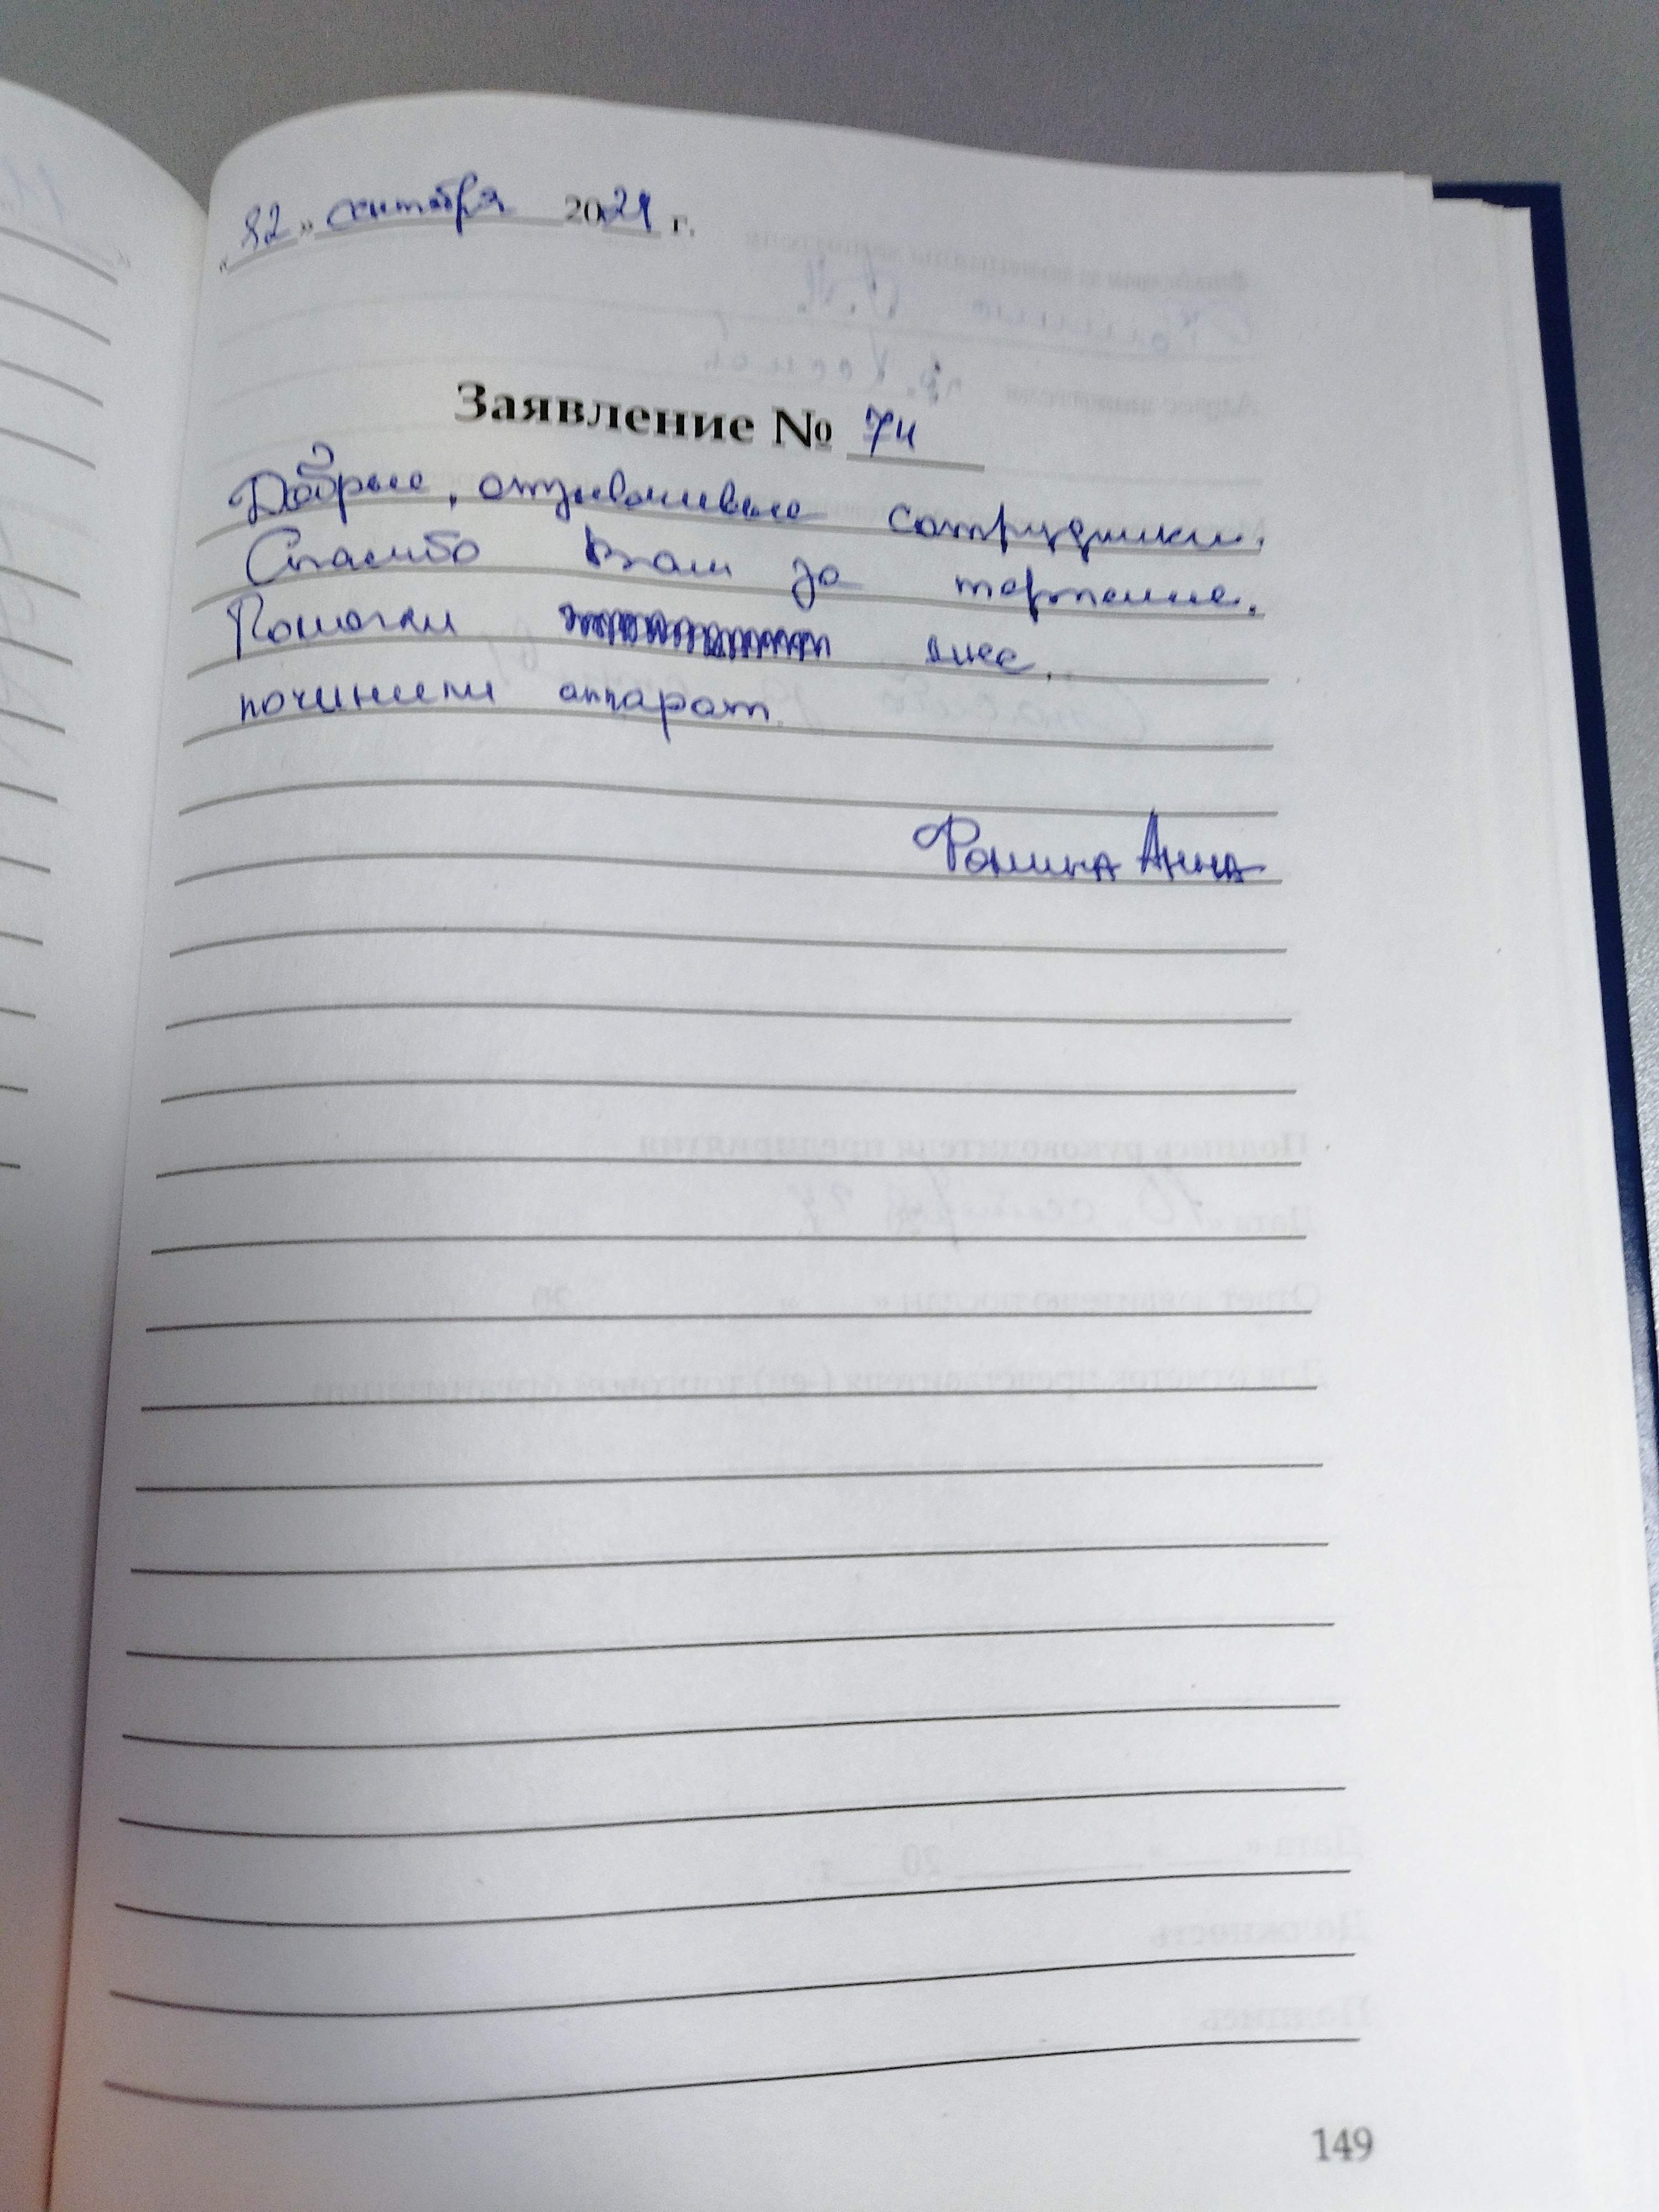 « 12 » сентября 2021 г.
Заявление № 74
Добрые, отзывчивые сотрудники.
Спасибо Вам за терпение.
Помогли мне,
починили аппарат.
Фомина Анна
149